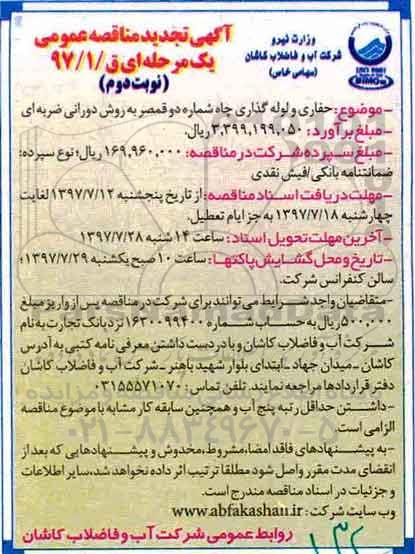 وزارت نیرو
شرکت آب و فاضلاب کاشان
(سهامی خاص)
آگهی تجدید مناقصه عمومی
یک مرحله ای ق/۹۷/۱
(نوبت دوم)
-موضوع: حفاری و لوله گذاری چاه شماره دو قمصر به روش دورانی ضربه ای
-مبلغ برآورد: ۳,۳۹۹,۱۹۹,۰۵۰ ریال.
-مبلغ سپرده شرکت در مناقصه: ۱۶۹,۹۶۰,۰۰۰ ریال؛ نوع سپرده:
ضمانتنامه بانکی/فیش نقدی
-مهلت دریافت اسناد مناقصه: از تاریخ پنجشنبه ۱۳۹۷/۷/۱۲ لغایت
چهارشنبه ۱۳۹۷/۷/۱۸ به جز ایام تعطیل.
-آخرین مهلت تحویل اسناد: ساعت ۱۴ شنبه ۱۳۹۷/۷/۲۸
-تاریخ و محل گشایش پاکتها: ساعت ۱۰ صبح یکشنبه ۱۳۹۷/۷/۲۹؛
سالن کنفرانس شرکت.
-متقاضیان واجد شرایط می توانند برای شرکت در مناقصه پس از واریز مبلغ
۵۰۰,۰۰۰ ریال به حساب شماره ۱۶۳۰۰۹۹۴۰۰ نزد بانک تجارت به نام
شرکت آب و فاضلاب کاشان و با در دست داشتن معرفی نامه کتبی به آدرس
کاشان -میدان جهاد -ابتدای بلوار شهید باهنر -شرکت آب و فاضلاب کاشان
دفتر قراردادها مراجعه نمایند. تلفن تماس: ۰۳۱۵۵۵۷۱۰۷۰
-داشتن حداقل رتبه پنج آب و همچنین سابقه کار مشابه با موضوع مناقصه
الزامی است.
-به پیشنهادهای فاقد امضا، مشروط، مخدوش و پیشنهادهایی که بعد از
انقضای مدت مقرر واصل شود مطلقا ترتیب اثر داده نخواهد شد، سایر اطلاعات
و جزئیات در اسناد مناقصه مندرج است.
وب سایت شرکت: www.abfakashan.ir
روابط عمومی شرکت آب و فاضلاب کاشان
۰۲۱-۸۸۳۴۹۶۷۰-۵